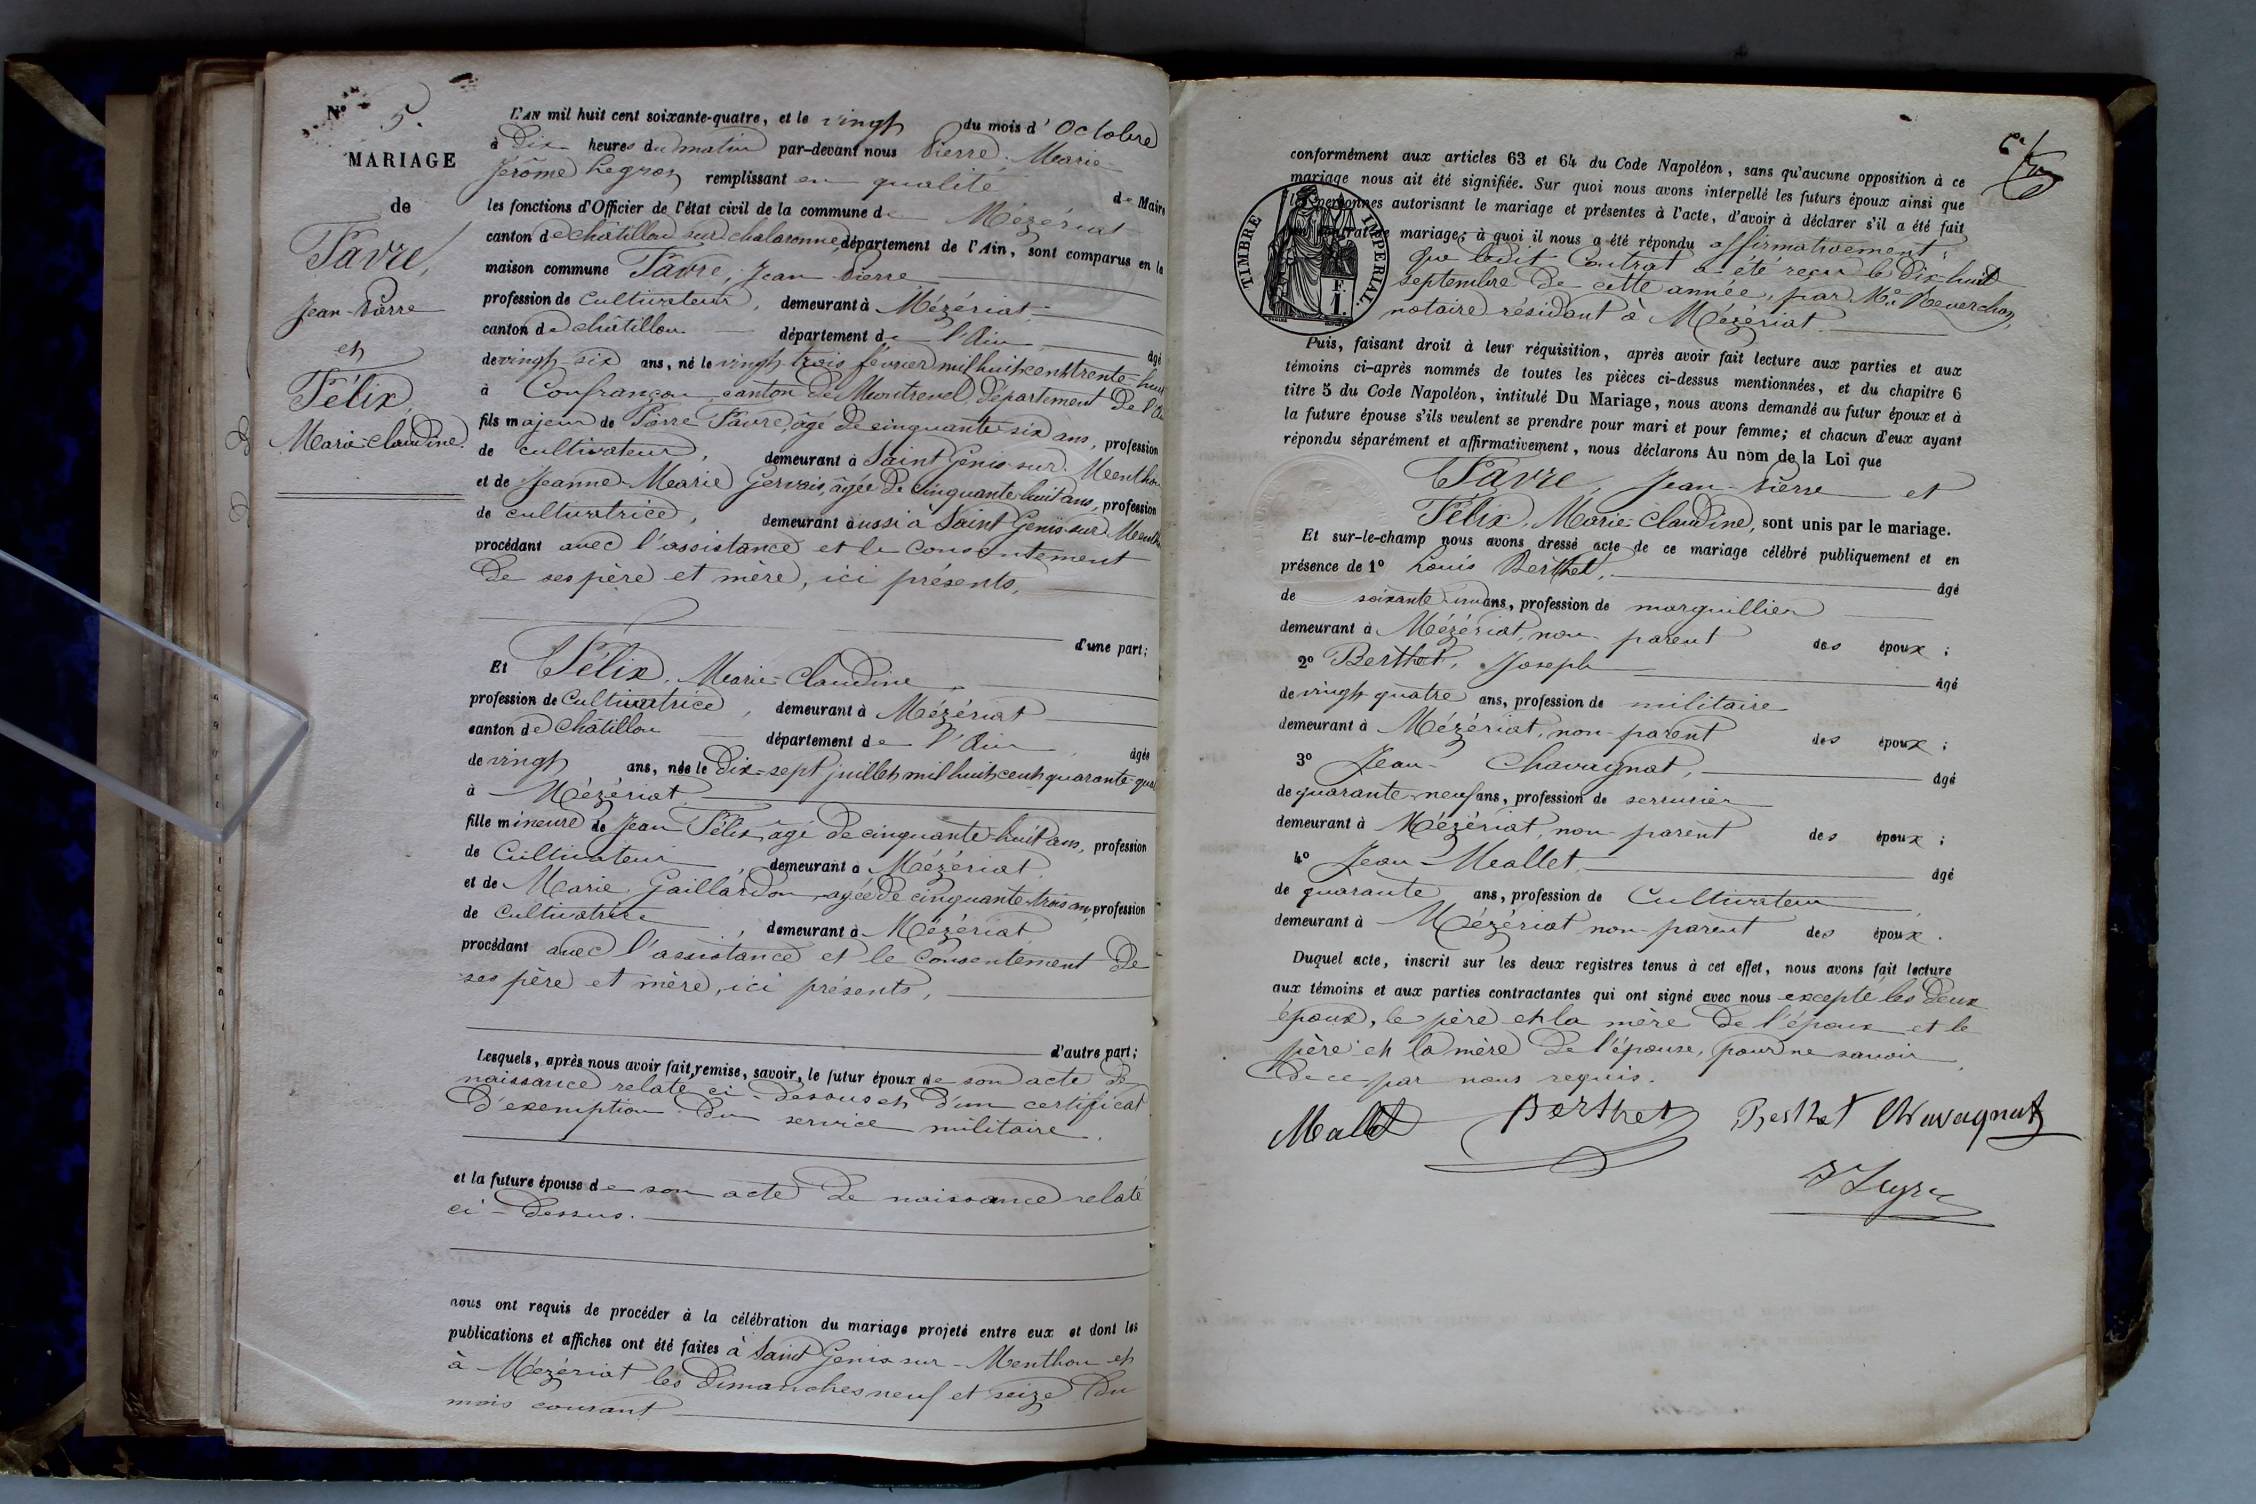 N° 5.
MARIAGE
de
Favre,
Jean-Pierre
et
Félix,
Marie-Claudine.
L'AN mil huit cent soixante-quatre, et le vingt du mois d'Octobre
à Dix heures du matin par-devant nous Pierre Marie
Jérôme Legros remplissant en qualité de Maire
les fonctions d'Officier de l'état civil de la commune de Mézériat
canton de Châtillon sur Chalaronne, département de l'Ain, sont comparus en la
maison commune Favre, Jean Pierre
profession de Cultivateur, demeurant à Mézériat,
canton de Châtillon département de l'Ain âgé
de vingt-six ans, né le vingt-trois février mil huit cent trente huit
à Confrançon, canton de Montrevel, Département de l'Ain
fils majeur de Pierre Favre, âgé de cinquante-six ans, profession
de cultivateur, demeurant à Saint Genis-sur-Menthon
et de Jeanne-Marie Gervais, âgée de cinquante huit ans, profession
de cultivatrice, demeurant aussi à Saint Genis-sur-Menth
procédant avec l'assistance et le Consentement
de ses père et mère, ici présents,
d'une part;
Et Félix, Marie-Claudine
profession de Cultivatrice, demeurant à Mézériat
canton de Châtillon département de l'Ain, âgée
de vingt ans, née le Dix-sept juillet mil huit cent quarante-qua
à Mézériat
fille mineure de Jean Félix, âgé de cinquante-huit ans, profession
de Cultivateur, demeurant à Mézériat,
et de Marie Gaillardon, agée de cinquante-trois ans, profession
de Cultivatrice, demeurant à Mézériat
procédant avec l'assistance et le Consentement de
ses père et mère, ici présents,
d'autre part;
Lesquels, après nous avoir fait, remise, savoir, le futur époux de son acte de
naissance relaté ci-dessus et d'un certificat
d'exemption du service militaire.
et la future épouse de son acte de naissance relaté
ci-dessus.
nous ont requis de procéder à la célébration du mariage projeté entre eux et dont les
publications et affiches ont été faites à Saint Genis sur-Menthon et
à Mézériat les dimanches neuf et seize du
mois courant
conformément aux articles 63 et 64 du Code Napoléon, sans qu'aucune opposition à ce
mariage nous ait été signifiée. Sur quoi nous avons interpellé les futurs époux ainsi que
les personnes autorisant le mariage et présentes à l'acte, d'avoir à déclarer s'il a été fait
mariage; à quoi il nous a été répondu affirmativement;
TIMBRE IMPÉRIAL.
F.
1.
que ledit Contrat a été reçu le Dix-huit
septembre de cette année, par Me Reverchon,
notaire résidant à Mézériat.
Puis, faisant droit à leur réquisition, après avoir fait lecture aux parties et aux
témoins ci-après nommés de toutes les pièces ci-dessus mentionnées, et du chapitre 6
titre 5 du Code Napoléon, intitulé Du Mariage, nous avons demandé au futur époux et à
la future épouse s'ils veulent se prendre pour mari et pour femme; et chacun d'eux ayant
répondu séparément et affirmativement, nous déclarons Au nom de la Loi que
Favre, Jean-Pierre et
Félix, Marie-Claudine, sont unis par le mariage.
Et sur-le-champ nous avons dressé acte de ce mariage célébré publiquement et en
présence de 1° Louis Berthet, âgé
de soixante-un ans, profession de marguillier
demeurant à Mézériat, non-parent des époux;
2° Berthet, Joseph âgé
de vingt-quatre ans, profession de militaire
demeurant à Mézériat, non-parent des époux;
3° Jean Chavagnat, âgé
de quarante-neuf ans, profession de serrurier
demeurant à Mézériat, non-parent des époux;
4° Jean Mallet, âgé
de quarante ans, profession de Cultivateur
demeurant à Mézériat non-parent des époux.
Duquel acte, inscrit sur les deux registres tenus à cet effet, nous avons fait lecture
aux témoins et aux parties contractantes qui ont signé avec nous excepté les deux
époux, le père et la mère de l'époux et le
père et la mère de l'épouse, pour ne savoir,
de ce par nous requis.
Mallet Berthet Berthet Chavagnat